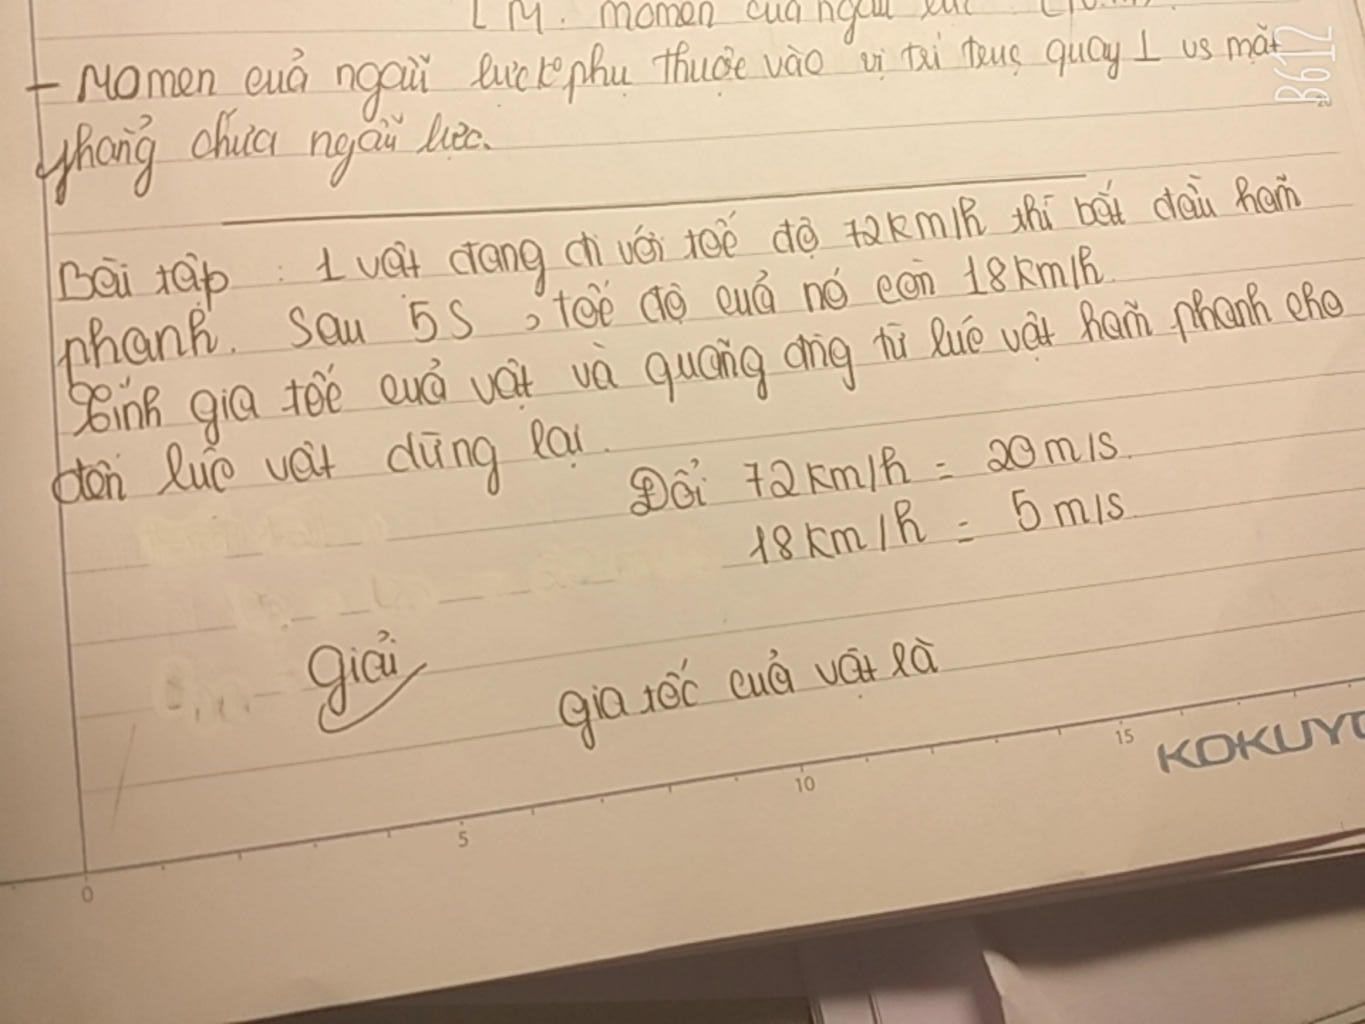 M. momen của ngẫu lực
- Momen của ngẫu lực ko phụ thuộc vào vị trí trục quay ⊥ vs mặt
phẳng chứa ngẫu lực.
Bài tập : 1 vật đang đi với tốc độ 72km/h thì bắt đầu hãm
phanh. Sau 5s, tốc độ của nó còn 18km/h.
Tính gia tốc của vật và quãng đng từ lúc vật hãm phanh cho
đến lúc vật dừng lại.
Đổi 72km/h = 20m/s.
18km/h = 5m/s
Giải
gia tốc của vật là
0 5 10 15 20
KOKUYO
B612